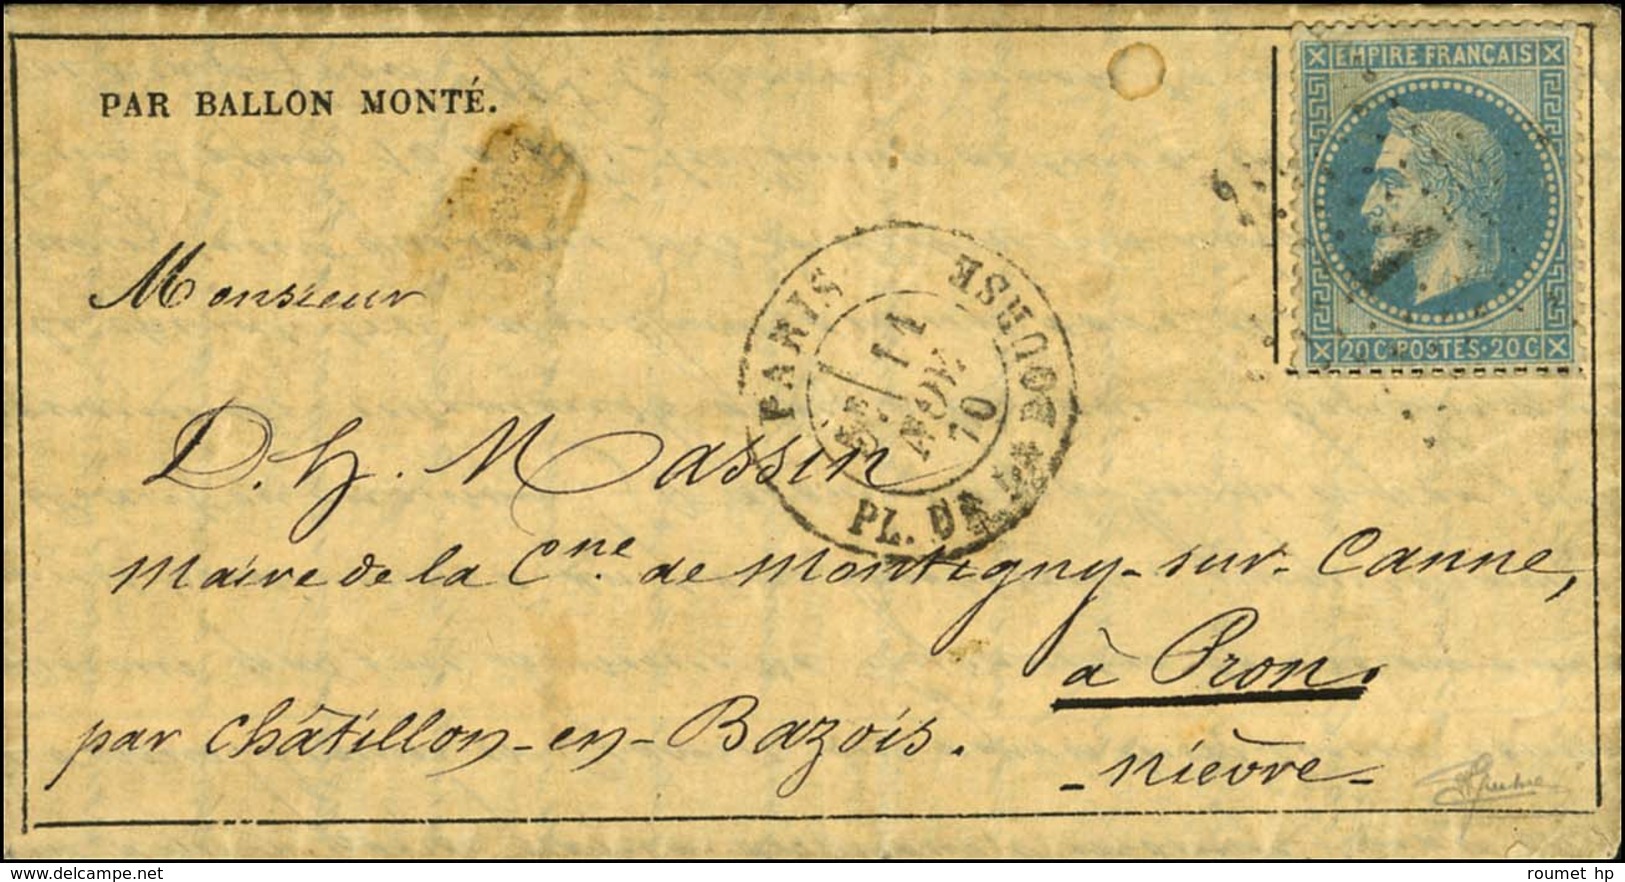 EMPIRE FRANÇAIS
20 C · POSTES · 20 C
PAR BALLON MONTÉ.
Monsieur
PARIS PL. DE LA BOURSE
11
NOV
70
D. H. Massin
Maire de la Cne. de Montigny-sur-Canne,
à Pron.
par Châtillon-en-Bazois.
- Nièvre -
roumet hp